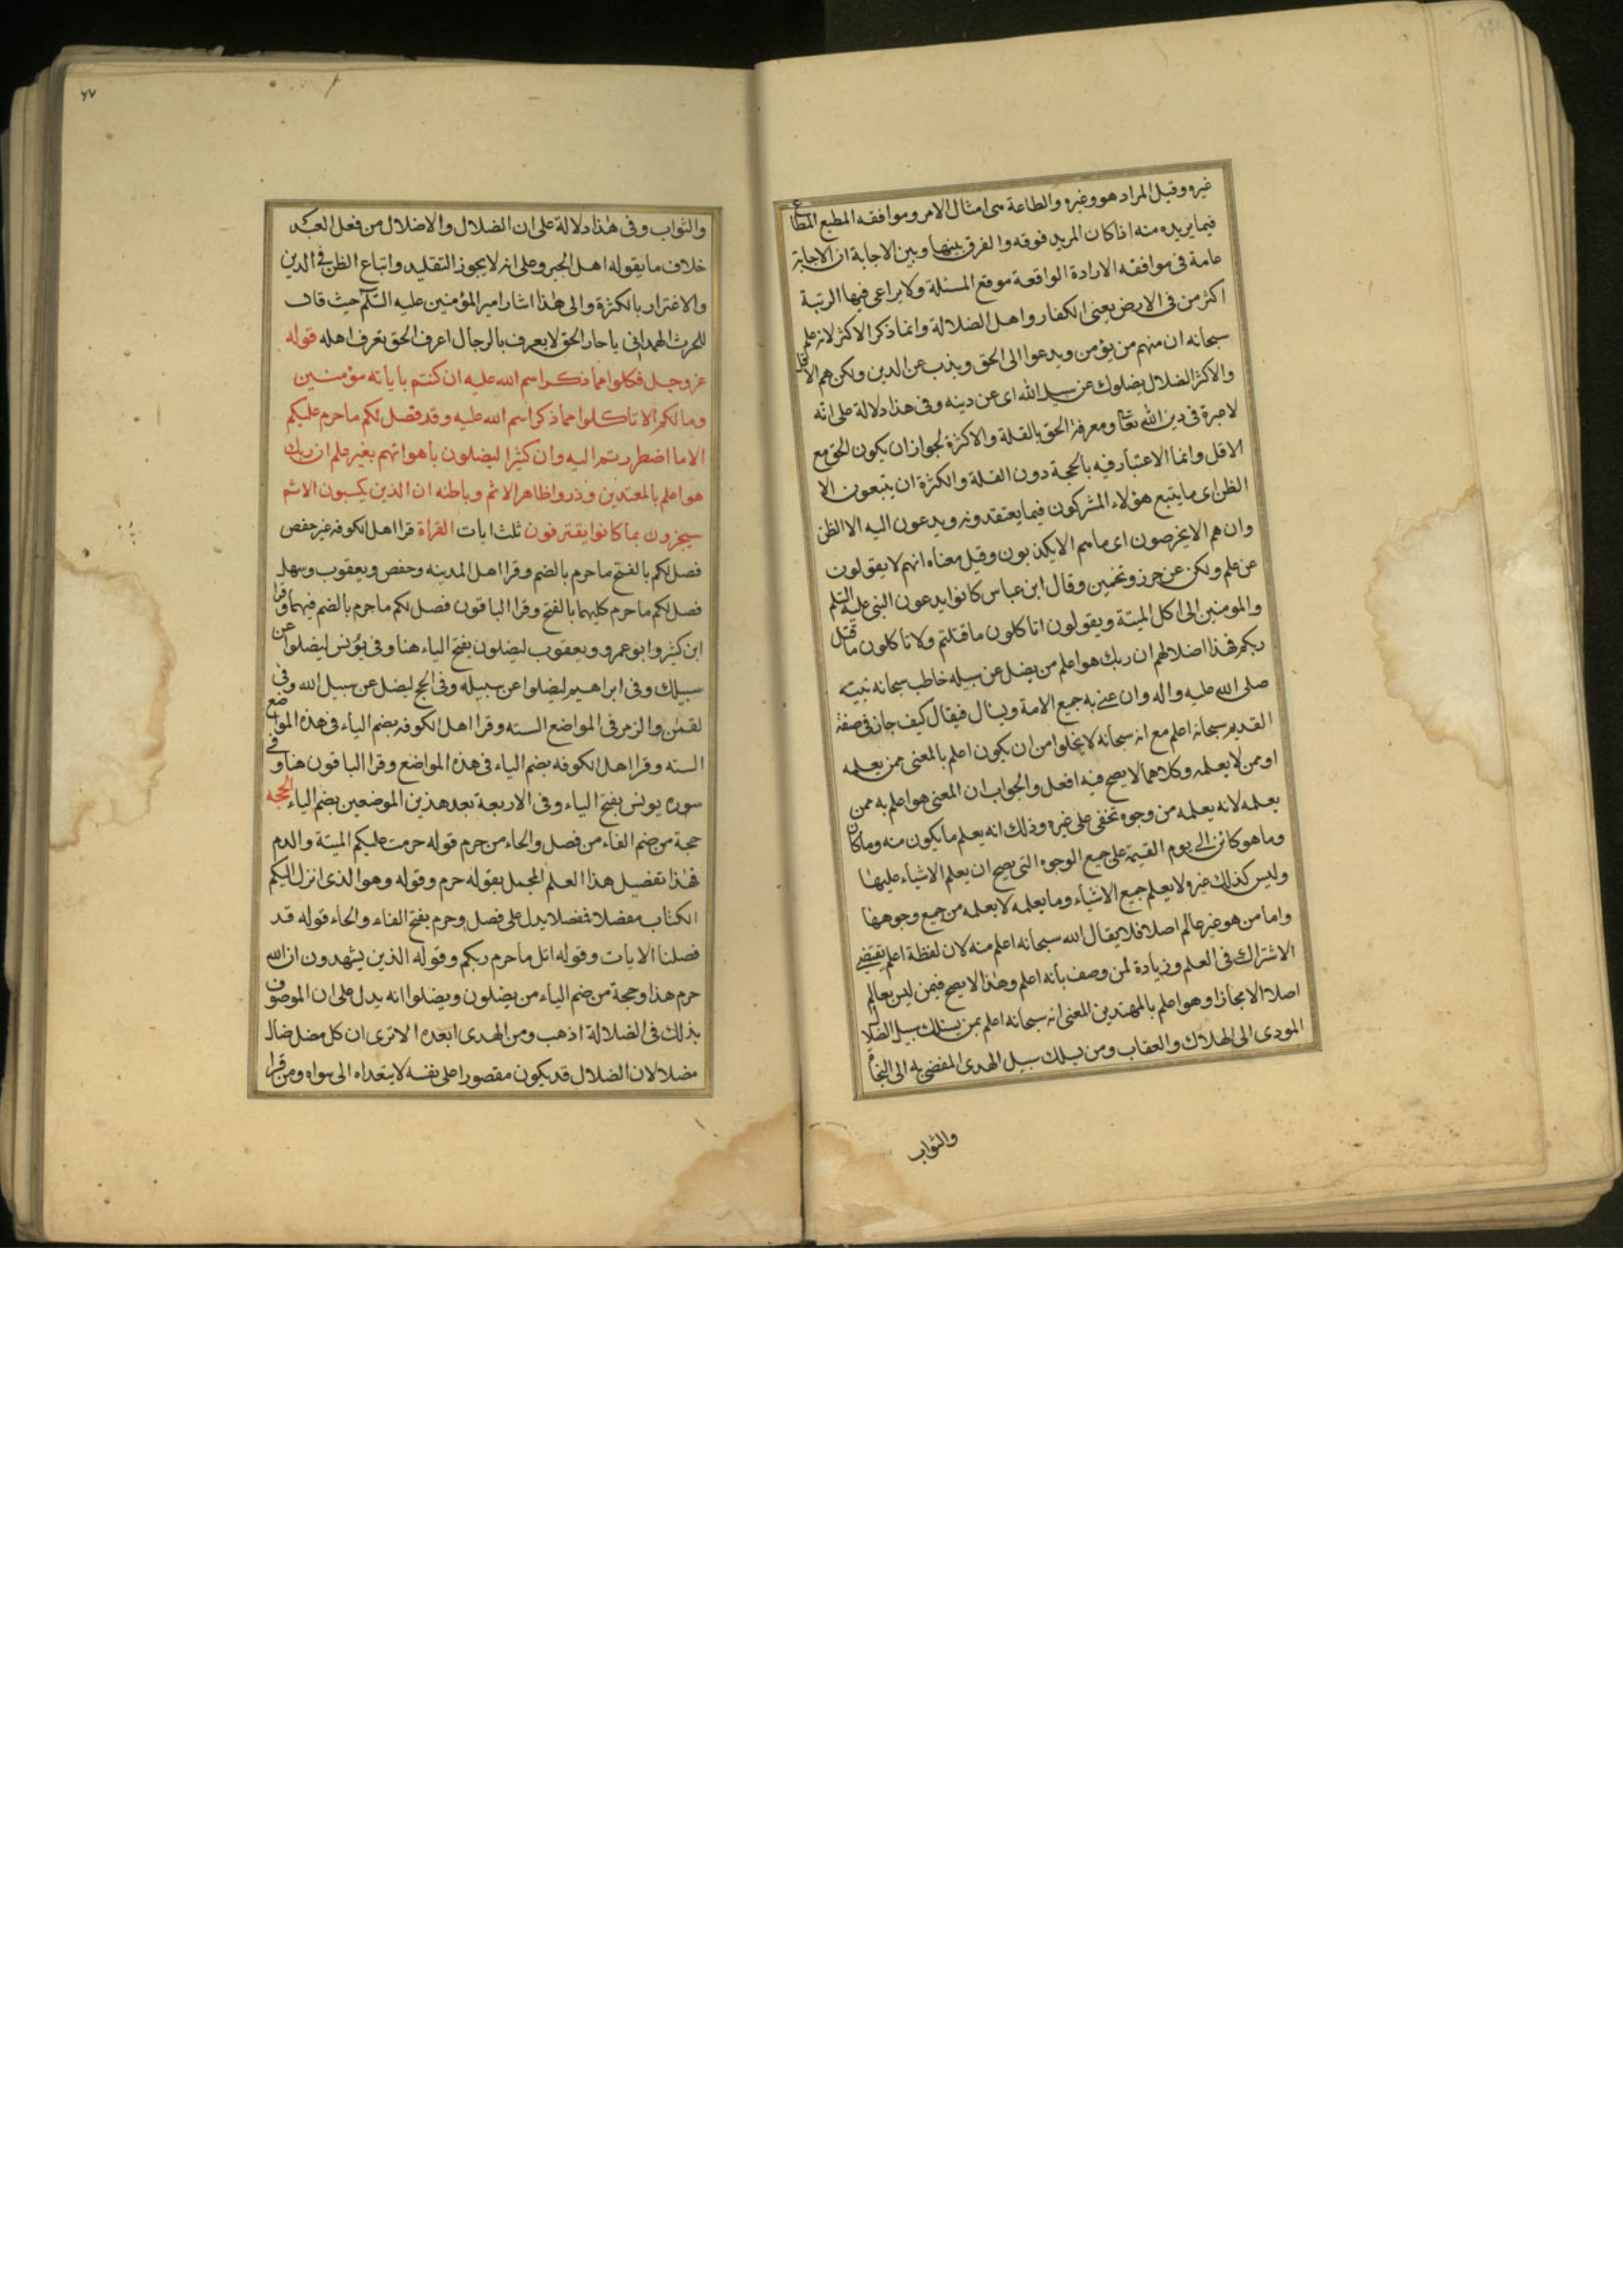 غيره وقيل المراد هو وغيره والطاعة هى امتثال الامر وموافقه المطيع المطاع
فيما يريده منه اذا كان المريد فوقه والفرق بينها وبين الاجابة ان الاجابة
عامة فى موافقه الارادة الواقعة موقع المسئلة ولا يراعى فيها الرتبة
اكثر من فى الارض يعنى الكفار واهل الضلالة وانما ذكر الاكثر لانه علم
سبحانه ان منهم من يؤمن ويدعوا الى الحق ويذب عن الدين ولكن هم الاقل
والاكثر الضلال يضلوك عن سبيل الله اى عن دينه وفى هذا دلالة على انه
لا عبرة فى دين الله تعا ومعرفة الحق بالقلة والاكثرة لجواز ان يكون الحق مع
الاقل وانما الاعتبار فيه بالحجة دون القلة والكثرة ان يتبعون الا
الظن اى ما يتبع هؤلاء المشركون فيما يعتقدونه ويدعون اليه الا الظن
وان هم الا يخرصون اى ما هم الا يكذبون وقيل معناه انهم لا يقولون
عن علم ولكن عن حرز وتخمين وقال ابن عباس كانوا يدعون النبى عليه السلم
والمومنين الى اكل الميتة ويقولون اتاكلون ما قتلتم ولا تاكلون ما قتل
ربكم فهذا اضلالهم ان ربك هو اعلم من يضل عن سبيله خاطب سبحانه نبيه
صلى الله عليه واله وان عنى به جميع الامة ويسال فيقال كيف جاز فى صفة
القديم سبحانه اعلم مع انه سبحانه لا يخلوا من ان يكون اعلم بالمعنى ممن يعلمه
او ممن لا يعلمه وكلاهما لا يصح فيه افعل والجواب ان المعنى هو اعلم به ممن
يعلمه لانه يعلمه من وجوه تخفى على غيره وذلك انه يعلم ما يكون منه وما كان
وما هو كائن الى يوم القيمة على جميع الوجوه التى يصح ان يعلم الاشياء عليها
وليس كذلك غيره لا يعلم جميع الاشياء وما يعلمه لا يعلمه من جميع وجوهها
واما من هو غير عالم اصلا فلا يقال الله سبحانه اعلم منه لان لفظة اعلم يقتضى
الاشتراك فى العلم وزيادة لمن وصف بانه اعلم وهذا لا يصح فيمن ليس بعالم
اصلا الا مجازا وهو اعلم بالمهتدين المعنى انه سبحانه اعلم بمن يسلك سبيل الضلال
المودى الى الهلاك والعقاب ومن يسلك سبيل الهدى المفضى به الى النجاة
والثواب
٧٧
والثواب وفى هذا دلالة على ان الضلال والاضلال من فعل العبد
خلاف ما يقوله اهل الجبر وعلى انه لا يجوز التقليد واتباع الظن فى الدين
والاغترار بالكثرة والى هذا اشار امير المؤمنين عليه السلم حيث قال
للحرث الهمدانى يا حار الحق لا يعرف بالرجال اعرف الحق تعرف اهله قوله
عز وجل فكلوا مما ذكر اسم الله عليه ان كنتم باياته مؤمنين
وما لكم الا تاكلوا مما ذكر اسم الله عليه وقد فصل لكم ما حرم عليكم
الا ما اضطررتم اليه وان كثيرا ليضلون باهوائهم بغير علم ان ربك
هو اعلم بالمعتدين وذروا ظاهر الاثم وباطنه ان الذين يكسبون الاثم
سيجزون بما كانوا يقترفون ثلث ايات القراة قرا اهل الكوفه غير حفص
فصل لكم بالفتح ما حرم بالضم وقرا اهل المدينه وحفص ويعقوب وسهل
فصل لكم ما حرم كليهما بالفتح وقرا الباقون فصل لكم ما حرم بالضم فيهما وقرا
ابن كثير وابو عمرو ويعقوب ليضلون بفتح الياء هنا وفى يونس ليضلوا عن
سبيلك وفى ابراهيم ليضلوا عن سبيله وفى الحج ليضل عن سبيل الله وفى
لقمن والزمر فى المواضع السته وقرا اهل الكوفه بضم الياء فى هذه المواضع
السته وقرا اهل الكوفه بضم الياء فى هذه المواضع وقرا الباقون هنا وفى
سوره يونس بفتح الياء وفى الاربعة بعد هذين الموضعين بضم الياء الحجه
حجة من ضم الفاء من فصل والحاء من حرم قوله حرمت عليكم الميتة والدم
فهذا تفضيل هذا العلم المجمل بقوله حرم وقوله وهو الذى انزل اليكم
الكتاب مفصلا فمفصلا يدل على فصل وحرم بفتح الفاء والحاء قوله قد
فصلنا الايات وقوله اتل ما حرم ربكم وقوله الذين يشهدون ان الله
حرم هذا وحجة من ضم الياء من يضلون ويضلوا انه يدل على ان الموصوف
بذلك فى الضلالة اذهب ومن الهدى ابعد الا ترى ان كل مضل ضال
مضلا لان الضلال قد يكون مقصورا على نفسه لا يتعداه الى سواه ومن قرا